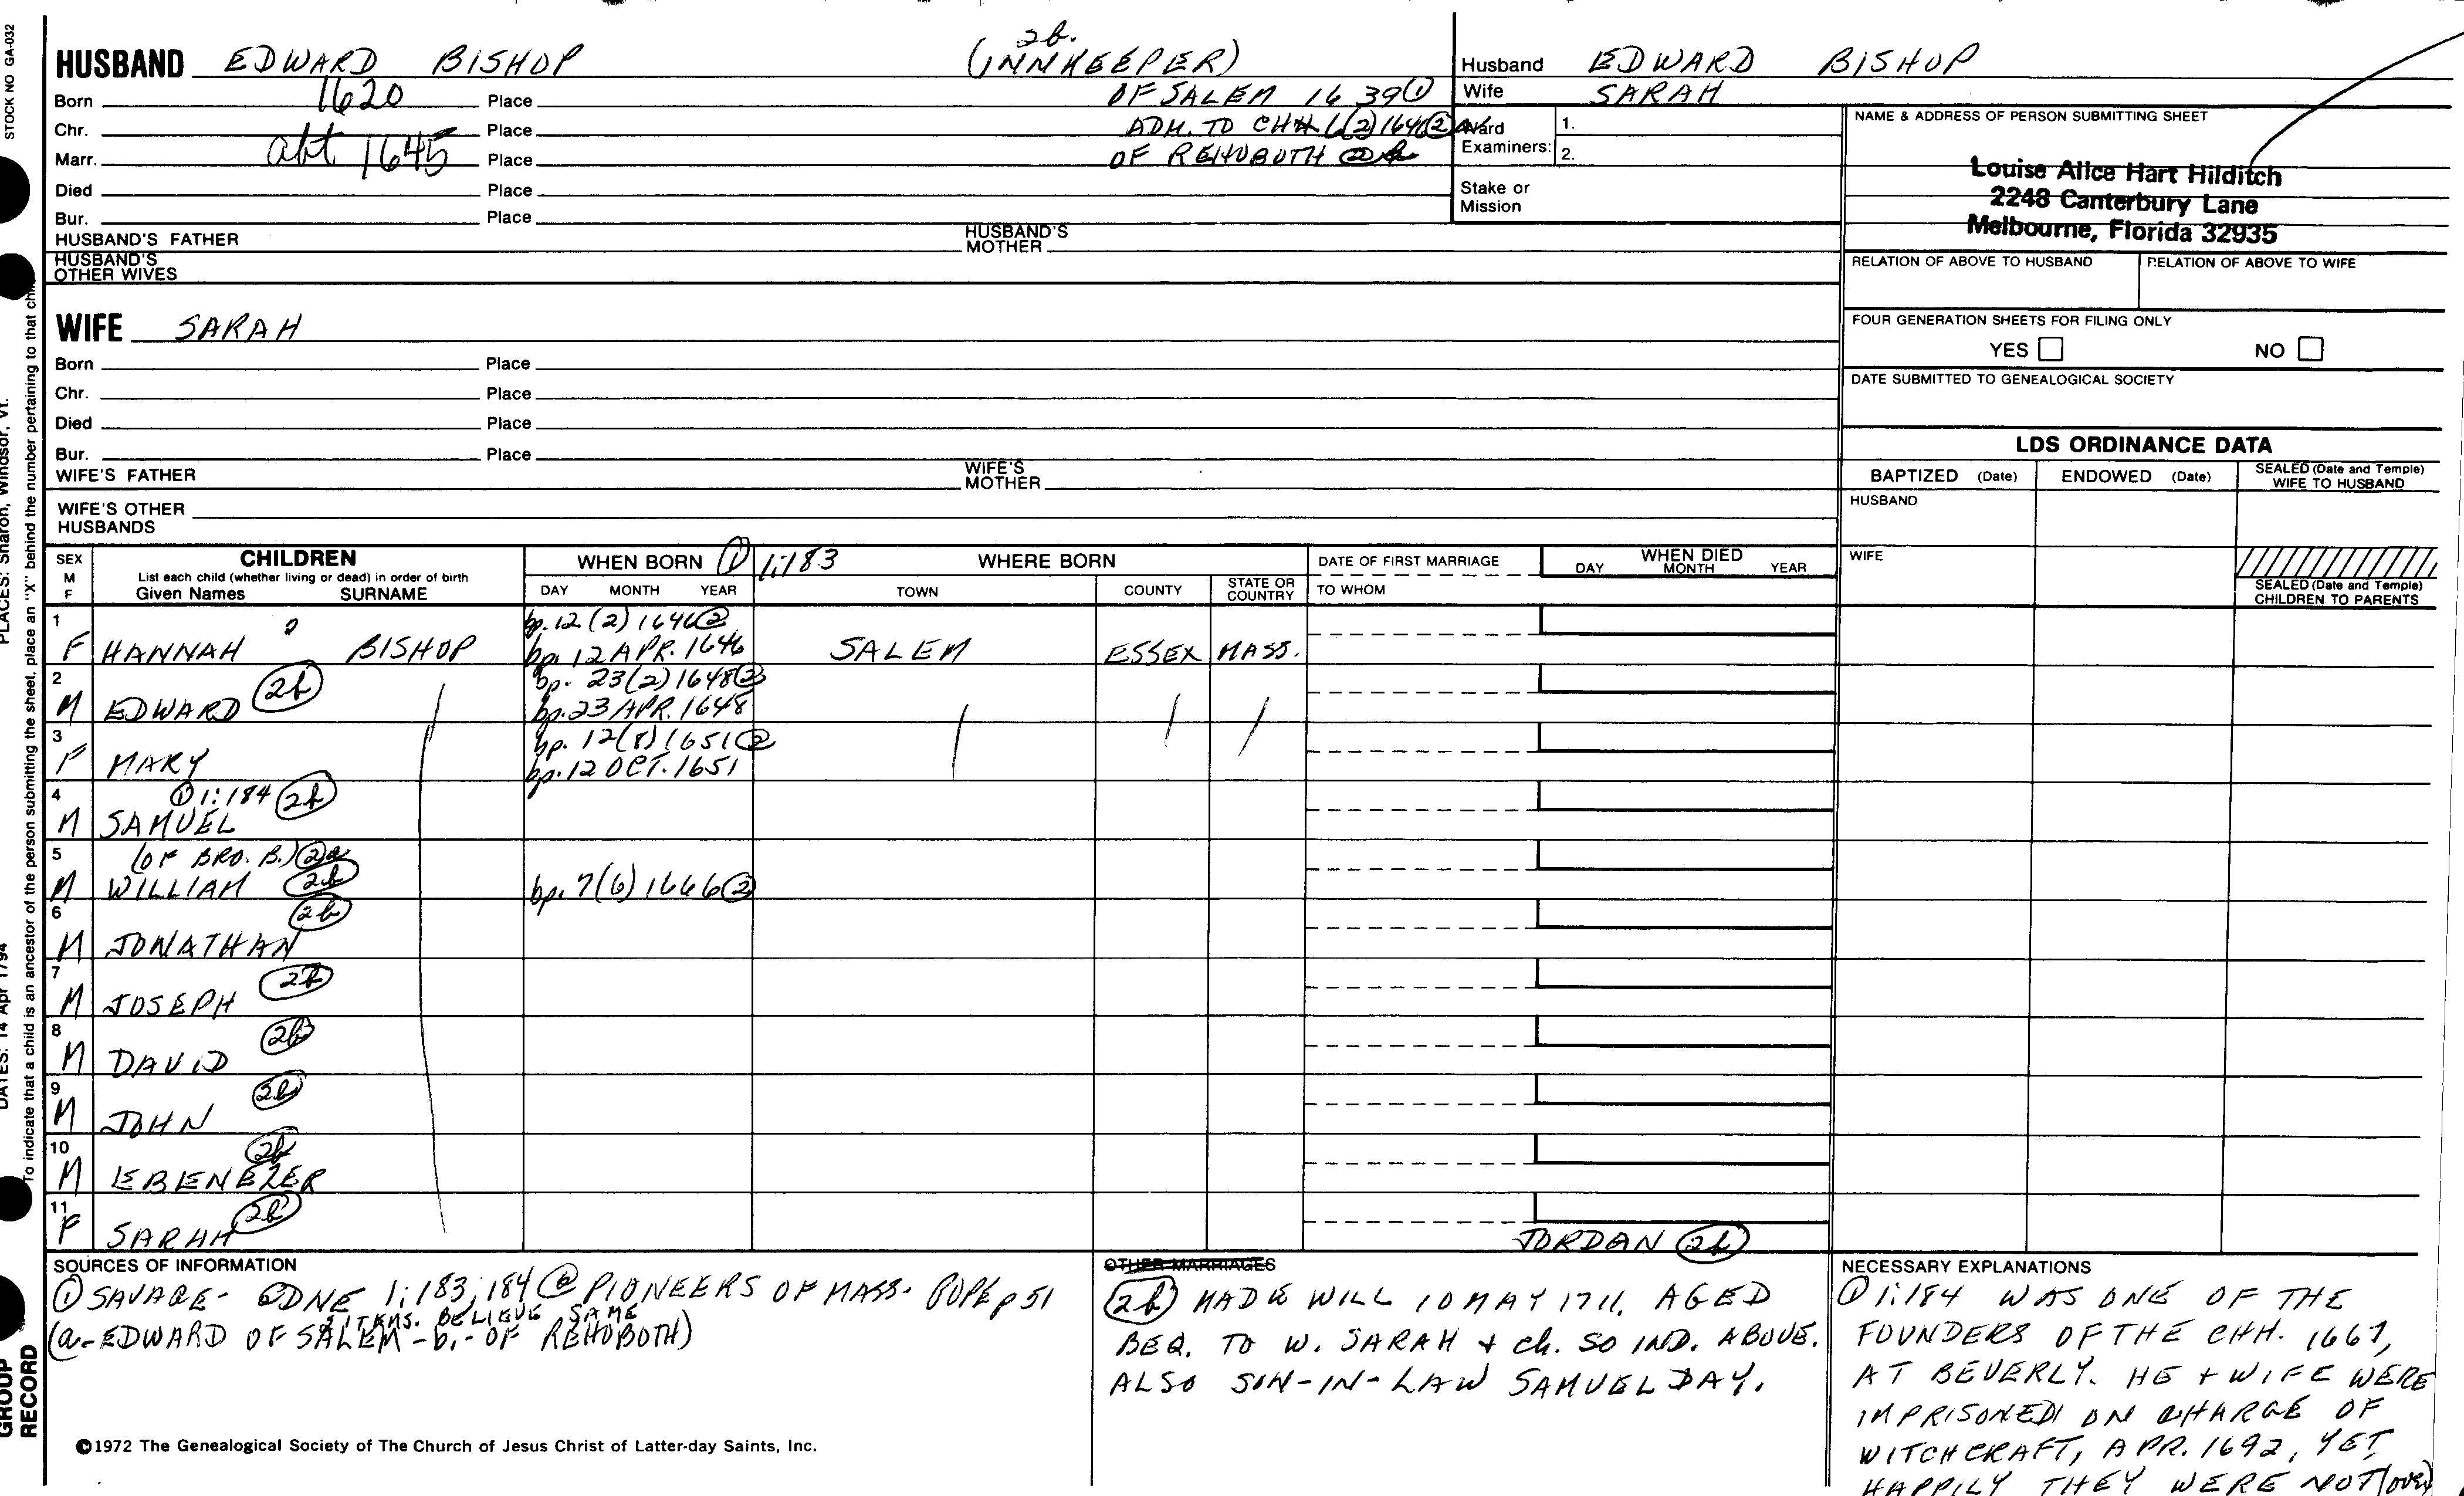 STOCK NO GA-032
PLACES: Sharon, Windsor, Vt.
DATES: 14 Apr 1794
To indicate that a child is an ancestor of the person submitting the sheet, place an "X" behind the number pertaining to that child
GROUP
RECORD
2b.
HUSBAND EDWARD BISHOP (INNKEEPER)
Born 1620 Place OF SALEM 1639 ①
Chr. Place ADM. TO CHH 6(2)1646 ②
Marr. abt 1645 Place OF REHOBOTH
Died Place
Bur. Place
HUSBAND'S FATHER HUSBAND'S MOTHER
HUSBAND'S OTHER WIVES
Husband EDWARD BISHOP
Wife SARAH
Ward 1.
Examiners: 2.
Stake or
Mission
NAME & ADDRESS OF PERSON SUBMITTING SHEET
Louise Alice Hart Hilditch
2248 Canterbury Lane
Melbourne, Florida 32935
RELATION OF ABOVE TO HUSBAND RELATION OF ABOVE TO WIFE
FOUR GENERATION SHEETS FOR FILING ONLY
YES NO
DATE SUBMITTED TO GENEALOGICAL SOCIETY
WIFE SARAH
Born Place
Chr. Place
Died Place
Bur. Place
WIFE'S FATHER WIFE'S MOTHER
WIFE'S OTHER
HUSBANDS
LDS ORDINANCE DATA
BAPTIZED (Date) ENDOWED (Date) SEALED (Date and Temple) WIFE TO HUSBAND
HUSBAND
WIFE
SEALED (Date and Temple)
CHILDREN TO PARENTS
SEX M F
CHILDREN
List each child (whether living or dead) in order of birth
Given Names SURNAME
WHEN BORN ① 1:183 WHERE BORN
DAY MONTH YEAR TOWN COUNTY STATE OR COUNTRY
DATE OF FIRST MARRIAGE
TO WHOM
WHEN DIED
DAY MONTH YEAR
1 bp. 12(2)1646 ②
F HANNAH BISHOP bp. 12 APR. 1646 SALEM ESSEX MASS.
2 2b bp. 23(2)1648 ②
M EDWARD bp. 23 APR. 1648
3 bp. 12(8)1651 ②
F MARY bp. 12 OCT. 1651
4 ① 1:184 2b
M SAMUEL
5 (OF BRO. B.) 2a
M WILLIAM 2b bp. 7(6)1646 ②
6 2b
M JONATHAN
7 2b
M JOSEPH
8 2b
M DAVID
9 2b
M JOHN
10 2b
M EBENEZER
11 2b
F SARAH JORDAN 2b
SOURCES OF INFORMATION
① SAVAGE - GDNE 1:183,184 ② PIONEERS OF MASS. POPE p 51
BELIEVE SAME
(a.- EDWARD OF SALEM - b.- OF REHOBOTH)
©1972 The Genealogical Society of The Church of Jesus Christ of Latter-day Saints, Inc.
OTHER MARRIAGES
2b MADE WILL 10 MAY 1711, AGED
BEQ. TO W. SARAH + ch. SO IND. ABOVE.
ALSO SON-IN-LAW SAMUEL DAY.
NECESSARY EXPLANATIONS
① 1:184 WAS ONE OF THE
FOUNDERS OF THE CHH. 1667,
AT BEVERLY. HE + WIFE WERE
IMPRISONED ON CHARGE OF
WITCHCRAFT, APR. 1692, YET
HAPPILY THEY WERE NOT (over)